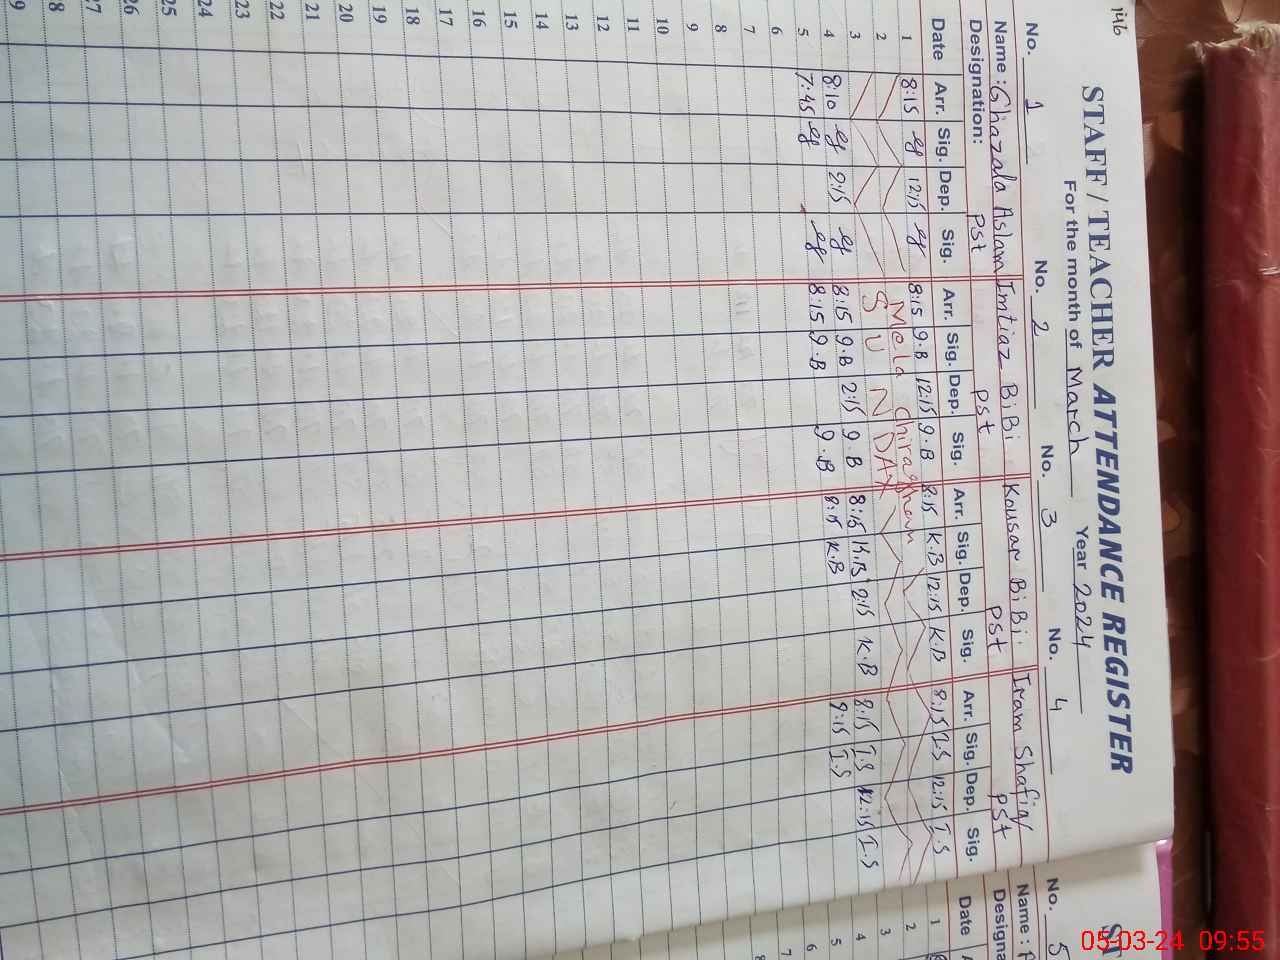 146
STAFF / TEACHER ATTENDANCE REGISTER
For the month of March Year 2024
No. 1 No. 2 No. 3 No. 4
Name : Ghazala Aslam Imtiaz BiBi Kousar BiBi Iram Shafia
Designation: Pst Pst Pst Pst
Date Arr. Sig. Dep. Sig. Arr. Sig. Dep. Sig. Arr. Sig. Dep. Sig. Arr. Sig. Dep. Sig.
1 8:15 12:15 8:15 9.B 12:15 9.B 8:15 K.B 12:15 K.B 8:15 I.S 12:15 I.S
2 Mela chiraghan
3 SUNDAY
4 8:10 2:15 8:15 9.B 2:15 9.B 8:15 K.B 2:15 K.B 8:15 I.S 12:15 I.S
5 7:45 8:15 9.B 9.B 8:15 K.B 9:15 I.S
6
7
8
9
10
11
12
13
14
15
16
17
18
19
20
21
22
23
24
25
26
27
8
9
ST
No. 5
Name :
Designa
Date
1
2
3
4
5
6
7
8
05-03-24 09:55